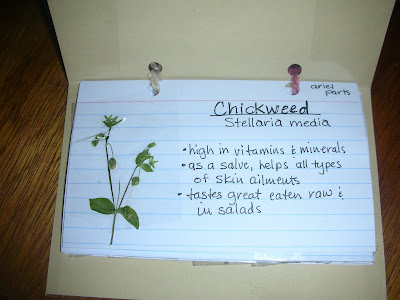 ariel
parts
Chickweed
Stellaria media
• high in vitamins & minerals
• as a salve, helps all types
of skin ailments
• tastes great eaten raw &
in salads